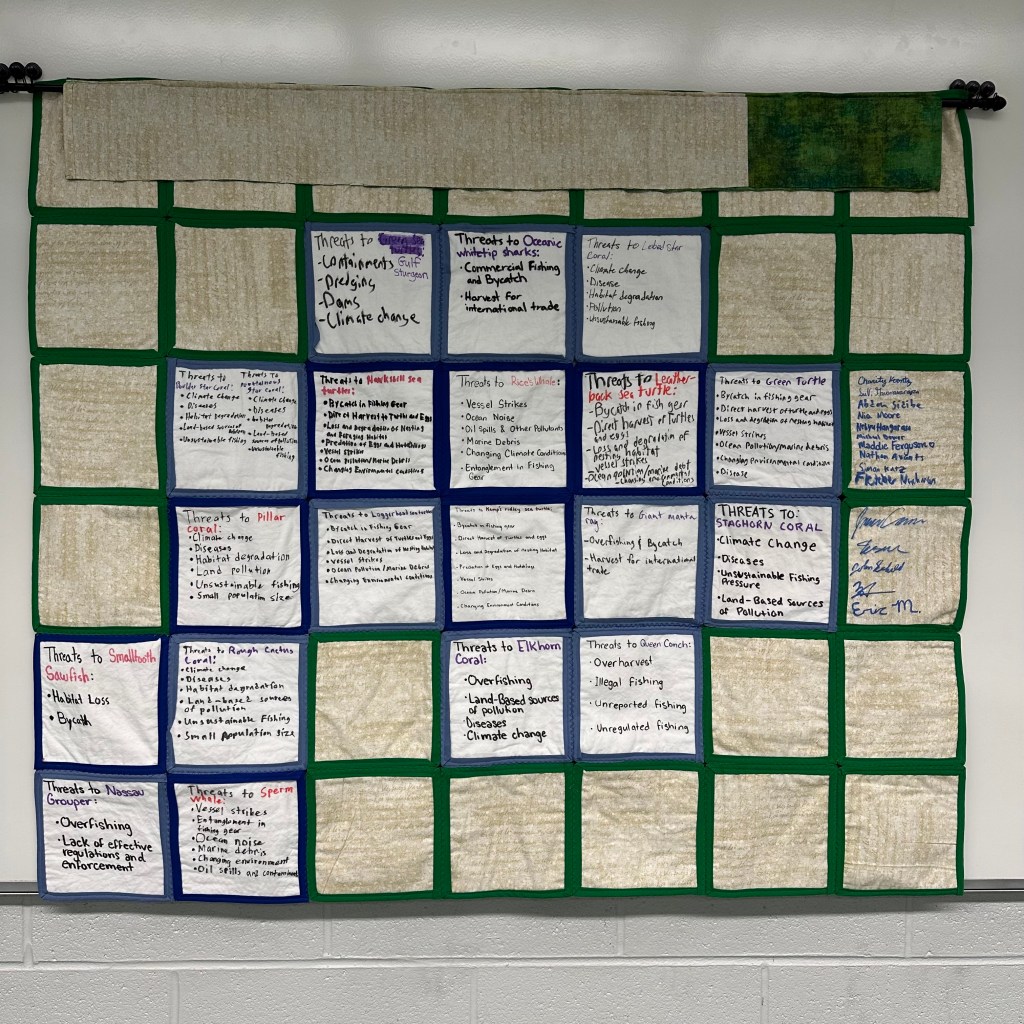 Threats to
Gulf
Sturgeon
-Containments
-Dredging
-Dams
-Climate change
Threats to Oceanic
whitetip sharks:
•Commercial Fishing
and Bycatch
•Harvest for
international trade
Threats to Lobed Star
Coral:
•Climate change
•Disease
•Habitat degradation
•Pollution
•Unsustainable fishing
Threats to
Boulder Star Coral:
• Climate change
• Diseases
• Habitat degradation
• Land-based sources of
• Unsustainable fishing
Threats to
mountainous
Star Coral:
• Climate change
• Diseases
• habitat
degradation
• Land-based
sources of pollution
• Unsustainable
fishing
Threats to Hawksbill sea
turtles:
•Bycatch in Fishing Gear
• Direct Harvest of Turtle and Eggs
•Loss and Degradation of Nesting
and Foraging Habitat
•Predation of Eggs and Hatchlings
•Vessel Strikes
•Ocean Pollution/Marine Debris
•Changing Environmental Conditions
Threats to Rice's Whale:
• Vessel Strikes
• Ocean Noise
• Oil Spills & Other Pollutants
• Marine Debris
• Changing Climate Conditions
• Entanglement in Fishing
Gear
Threats to Leather-
back sea turtle:
-Bycatch in fish gear
-Direct harvest of turtles
and eggs
-Loss and degradation of
nesting habitat
-vessel strikes
-Ocean pollution/marine debt
-Changing environmental
conditions
Threats to Green Turtle
•Bycatch in fishing gear
•Direct harvest of turtle and eggs
•Loss and degradation of nesting habitat
•Vessel Strikes
•Ocean Pollution/marine debris
•Changing environmental condition
•Disease
Nia Moore
Maddie Ferguson
Nathan
Simon Katz
Fletcher
Threats to Pillar
coral:
•Climate change
•Diseases
•Habitat degradation
•Land pollution
•Unsustainable fishing
•Small population size
Threats to Loggerhead
•Bycatch in Fishing Gear
•Direct Harvest of Turtles and Eggs
•Loss and Degradation of Nesting Habitat
•Vessel strikes
•Ocean Pollution/Marine Debris
•Changing Environmental Conditions
Threats to Kemp's ridley sea turtle:
•Bycatch in fishing gear
•Direct Harvest of Turtles and eggs
•Loss and Degradation of nesting Habitat
•Predation of Eggs and Hatchlings
•Vessel Strikes
•Ocean Pollution/Marine Debris
•Changing Environment Conditions
Threats to Giant manta
ray:
-Overfishing & Bycatch
-Harvest for international
trade
THREATS TO:
STAGHORN CORAL
•Climate Change
•Diseases
•Unsustainable Fishing
Pressure
•Land-Based Sources
of Pollution
Eric M.
Threats to Smalltooth
Sawfish:
•Habitat Loss
•Bycatch
Threats to Rough Cactus
Coral:
•Climate change
•Diseases
•Habitat degradation
•Land-based sources
of pollution
•Unsustainable Fishing
•Small Population size
Threats to Elkhorn
Coral:
•Overfishing
•Land-Based sources
of pollution
•Diseases
•Climate change
Threats to Queen Conch:
•Overharvest
•Illegal fishing
•Unreported fishing
•Unregulated fishing
Threats to Nassau
Grouper:
•Overfishing
•Lack of effective
regulations and
enforcement
Threats to Sperm
Whale:
•Vessel strikes
•Entanglement in
fishing gear
•Ocean noise
•Marine debris
•Changing environment
•Oil spills and contaminant